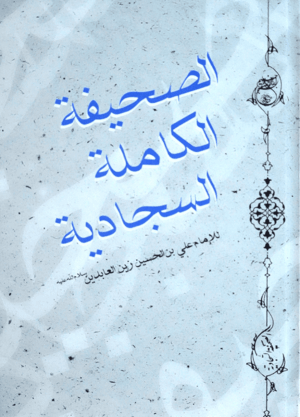 الصحيفة
الكاملة
السجادية
للإمام علي بن الحسين زين العابدين